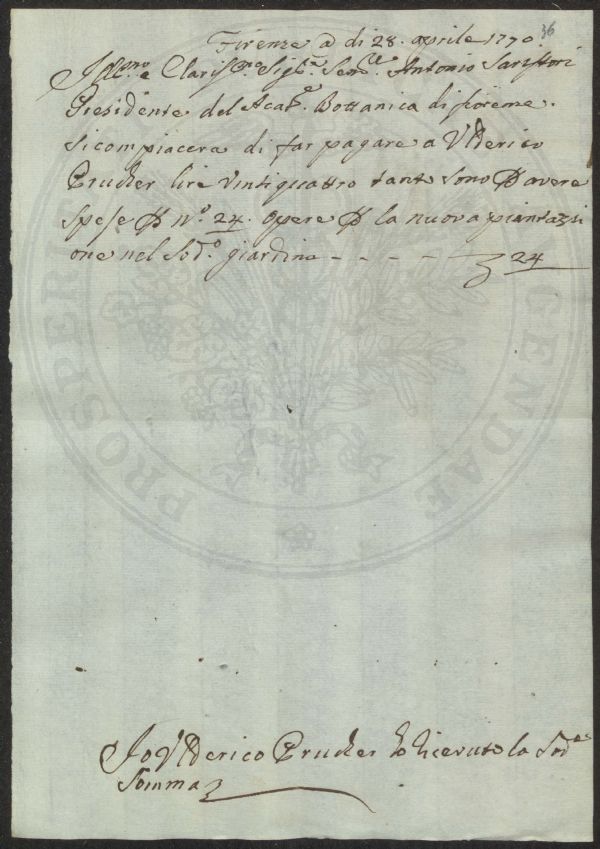 36
Firenze a di 28. aprile 1770.
Ill.mo e Clariss.mo Sig.re Sen.re Antonio Saristori
Presidente del Acad.a Bottanica di fiorenze.
Si compiacera di far pagare a Ulderico
Prucher lire vintiquattro tante sono p avere
spese p N.o 24. opere p la nuova piantazzi
one nel Sod.o giardino - - - - - 24
Io Ulderico Prucher ho ricevuto la Sod.a
Somma
PROSPERI
GENDAE